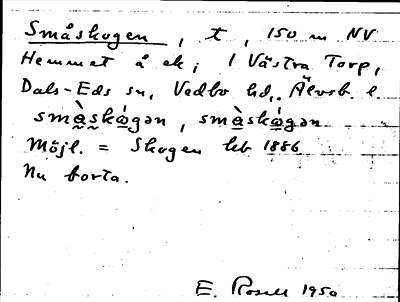 Småskogen, t, 150 m NV
Hemmet å ek; i Västra Torp,
Dals-Eds sn, Vedbo hd, Älvsb. l
smà̰skó̰gən, smà̰skó̰gən
Möjl. = Skogen leb 1886
Nu borta.
E. Rosell 1950